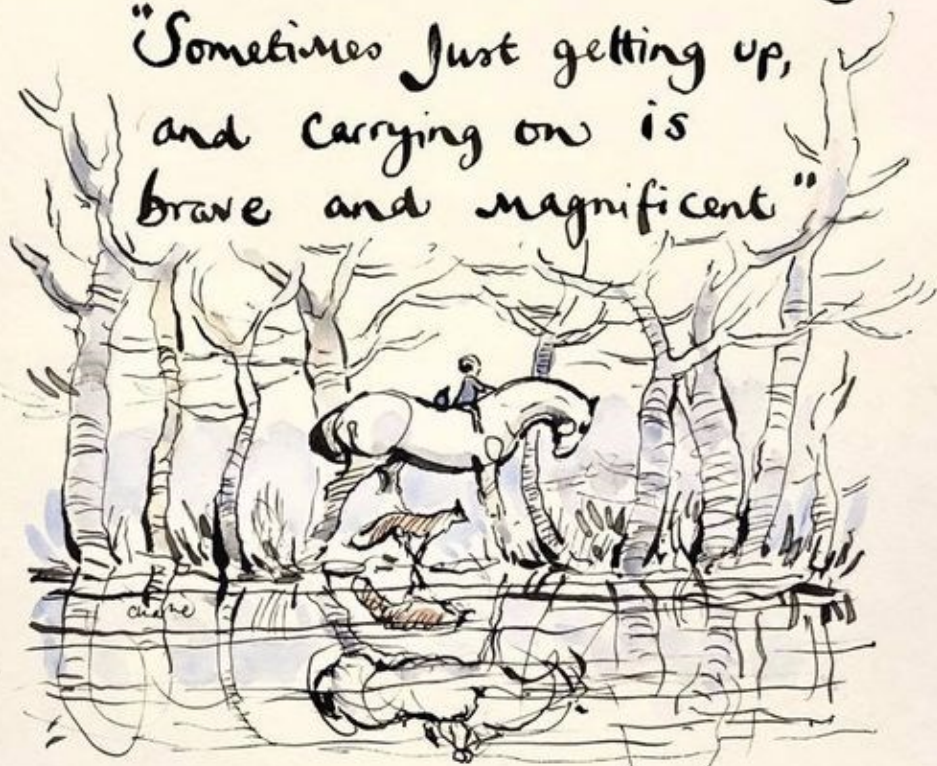 "Sometimes Just getting up,
and carrying on is
brave and magnificent"